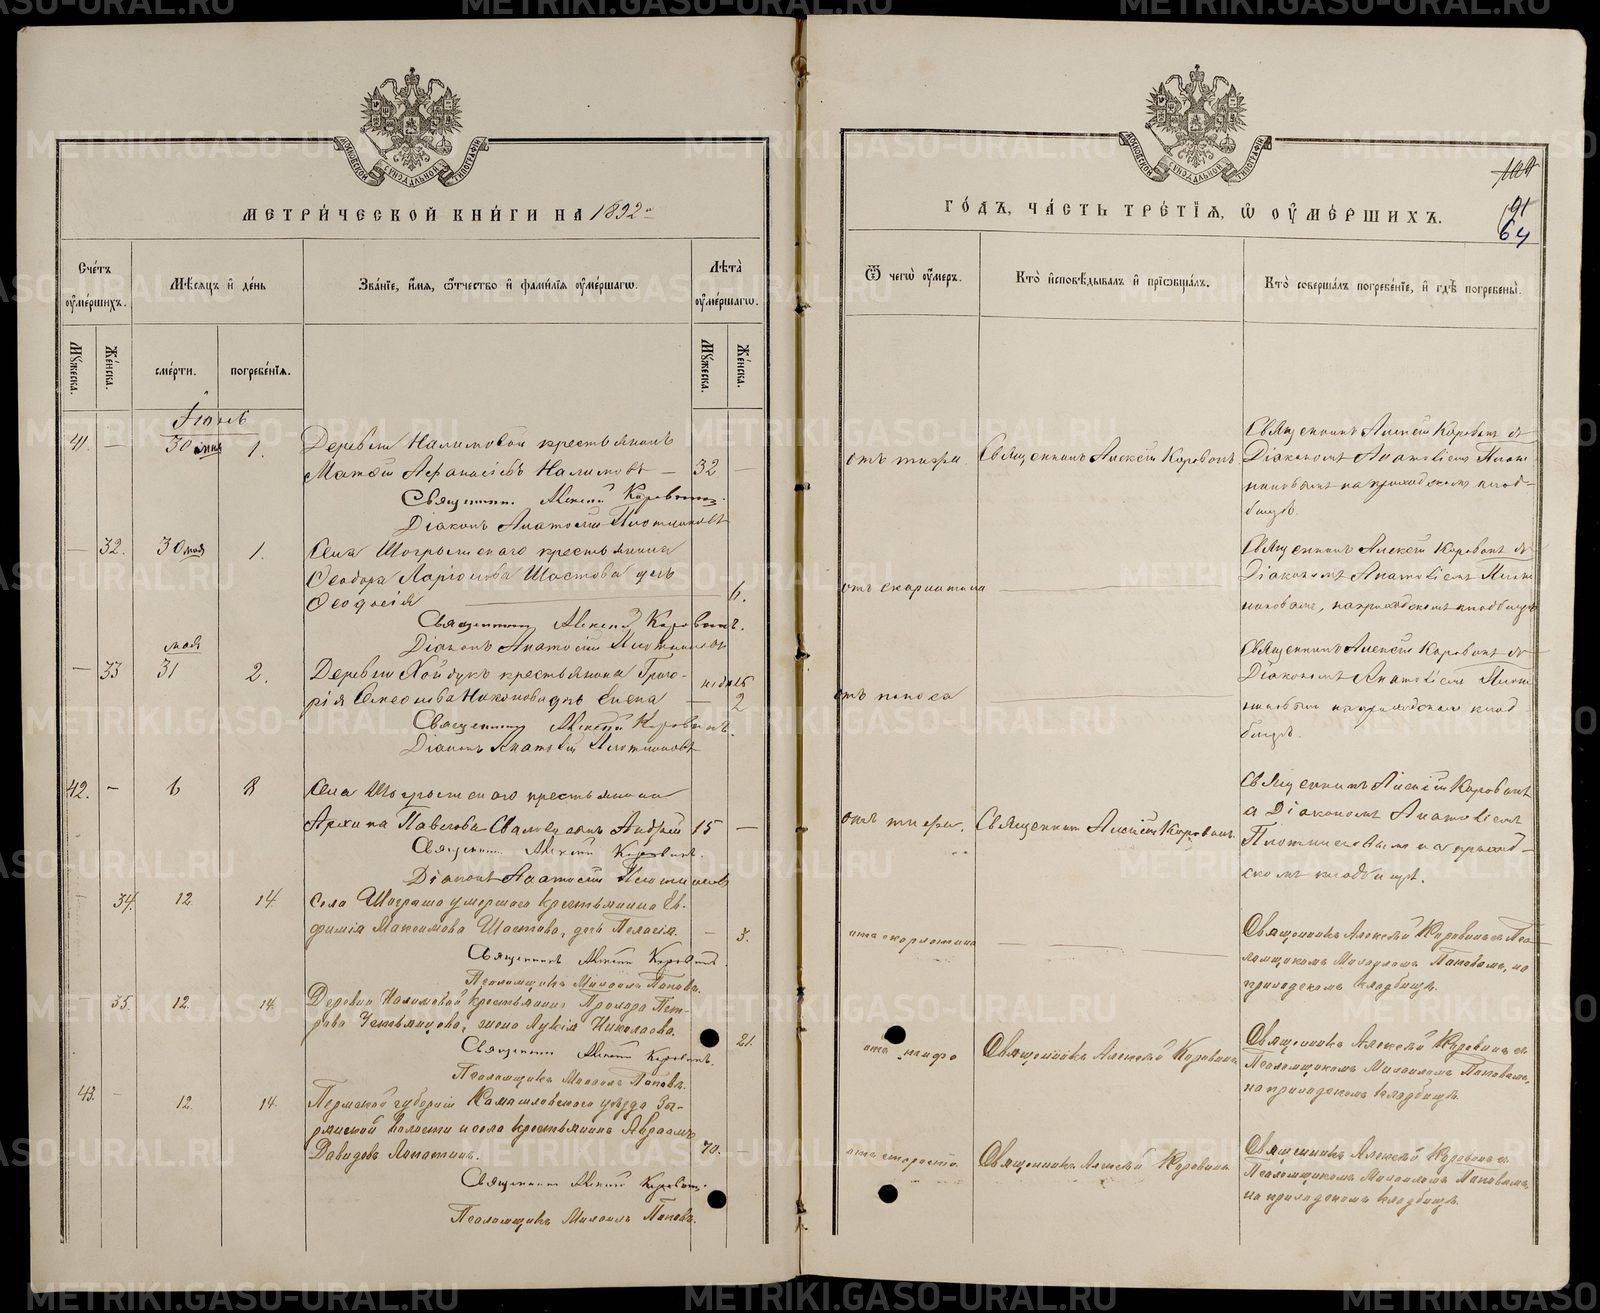 МЕТРИ́ЧЕСКОЙ КНИ́ГИ НА 1892
Сче́тъ ᲂу҆ме́ршихъ.
Мѣ́сяцъ и҆ де́нь
Зва́нїе, и҆́мя, ѻ҆́тчество и҆ фами́лїя ᲂу҆ме́ршагѡ.
Лѣ́та ᲂу҆ме́ршагѡ.
Мꙋ́жеска.
Же́нска.
сме́рти.
погребе́нїѧ.
Мꙋ́жеска.
Же́нска.
Іюнь
41. — 30 мая 1. Деревни Налимовой крестьянинъ
Матѳей Аѳанасіевъ Налимовъ — 32 —
Священникъ Алексій Коровинъ.
Діаконъ Анатолій Плотниковъ
— 32. 30 мая 1. Села Шогрышскаго крестьянина
Ѳеодора Ларіонова Шостова дочь
Ѳеодосія 6.
Священникъ Алексій Коровинъ.
Діаконъ Анатолій Плотниковъ
мая
— 33 31 2. Деревни крестьянина Григо-
рія Семенова дочь Елена — недѣль 2
Священникъ Алексій Коровинъ.
Діаконъ Анатолій Плотниковъ
42. — 6 8 Села Шогрышскаго крестьянина
Архипа Павлова сынъ Андрей 15 —
Священникъ Алексій Коровинъ.
Діаконъ Анатолій Плотниковъ
34. 12. 14. Села Шограша умершаго крестьянина Ев-
фимія Максимова Шостова, дочь Пелагія. — 3.
Священникъ Алексій Коровинъ.
Псаломщикъ Михаилъ Поповъ.
35. 12. 14. Деревни Налимовой крестьянина Прохора Пет-
рова Устьянцова, жена Лукія Николаева. 21.
Священникъ Алексій Коровинъ.
Псаломщикъ Михаилъ Поповъ.
43. — 12. 14. Пермской губерніи Камышловскаго уѣзда Зы-
рянской волости и села крестьянинъ Авраамъ
Давидовъ Лопатинъ. 70. —
Священникъ Алексій Коровинъ.
Псаломщикъ Михаилъ Поповъ.
ГО́ДЪ, ЧА́СТЬ ТРЕ́ТЇѦ, Ѡ҆ ОУ҆МЕ́РШИХЪ.
91
64
Ѿ чегѡ̀ ᲂу҆́меръ.
Кто̀ и҆сповѣ́дывалъ и҆ прїѡбща́лъ.
Кто̀ соверша́лъ погребе́нїе, и҆ гдѣ̀ погребены̀.
отъ тифа Священникъ Алексій Коровинъ
Священникъ Алексій Коровинъ съ
Діакономъ Анатоліемъ Плот-
никовымъ на приходскомъ клад-
бищѣ.
отъ скарлатина —
Священникъ Алексій Коровинъ съ
Діакономъ Анатоліемъ Плот-
никовымъ, на приходскомъ кладбищѣ
отъ поноса —
Священникъ Алексій Коровинъ съ
Діакономъ Анатоліемъ Плот-
никовымъ на приходскомъ клад-
бищѣ.
отъ тифа. Священникъ Алексій Коровинъ.
Священникъ Алексій Коровинъ
съ Діакономъ Анатоліемъ
Плотниковымъ на приход-
скомъ кладбищѣ.
отъ скарлатина —
Священникъ Алексѣй Коровинъ съ Пса-
ломщикомъ Михаиломъ Поповымъ, на
приходскомъ кладбищѣ.
отъ тифа Священникъ Алексѣй Коровинъ
Священникъ Алексѣй Коровинъ съ
Псаломщикомъ Михаиломъ Поповымъ,
на приходскомъ кладбищѣ.
отъ старости. Священникъ Алексѣй Коровинъ
Священникъ Алексѣй Коровинъ съ
Псаломщикомъ Михаиломъ Поповымъ,
на приходскомъ кладбищѣ.
METRIKI.GASO-URAL.RU